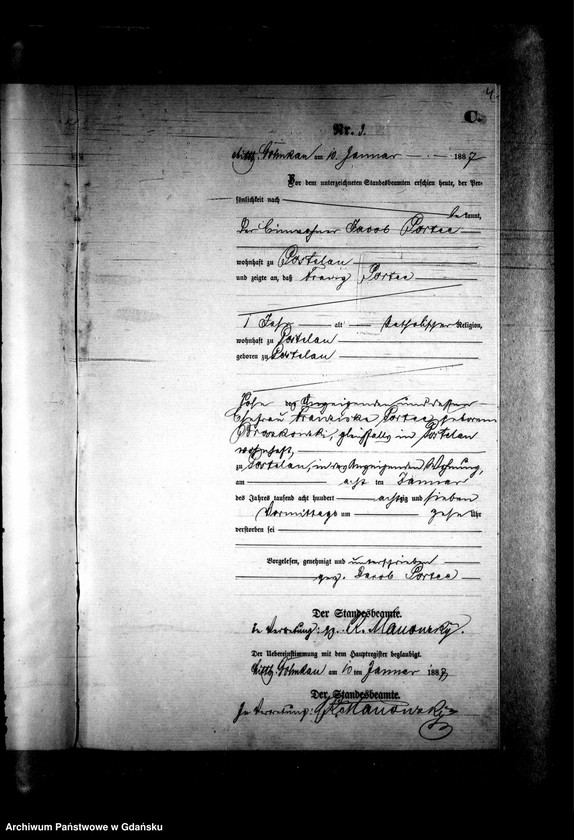 4.
C.
Nr. 3.
Rittg. Göhnkau am 10 Januar 1887
Vor dem unterzeichneten Standesbeamten erschien heute, der Per-
sönlichkeit nach
bekannt,
Der Einwohner Jacob Portee
wohnhaft zu Postelau
und zeigte an, daß Portee
1 Jahr alt katholischer Religion,
wohnhaft zu Postelau
geboren zu Postelau
Sohn des Anzeigenden und dessen
Ehefrau Franziska Portee geborene
gleichfalls in Postelau
wohnhaft,
zu Postelau, in des Anzeigenden Wohnung,
am acht ten Januar
des Jahres tausend acht hundert achtzig und sieben
Vormittags um zehn Uhr
verstorben sei
Vorgelesen, genehmigt und unterschrieben
gez. Jacob Portee
Der Standesbeamte.
In Vertretung: gz. K. Manowsky.
Der Uebereinstimmung mit dem Hauptregister beglaubigt.
Rittg. Göhnkau am 10 ten Januar 1887
Der Standesbeamte.
In Vertretung: K. Manowsky
Archiwum Państwowe w Gdańsku